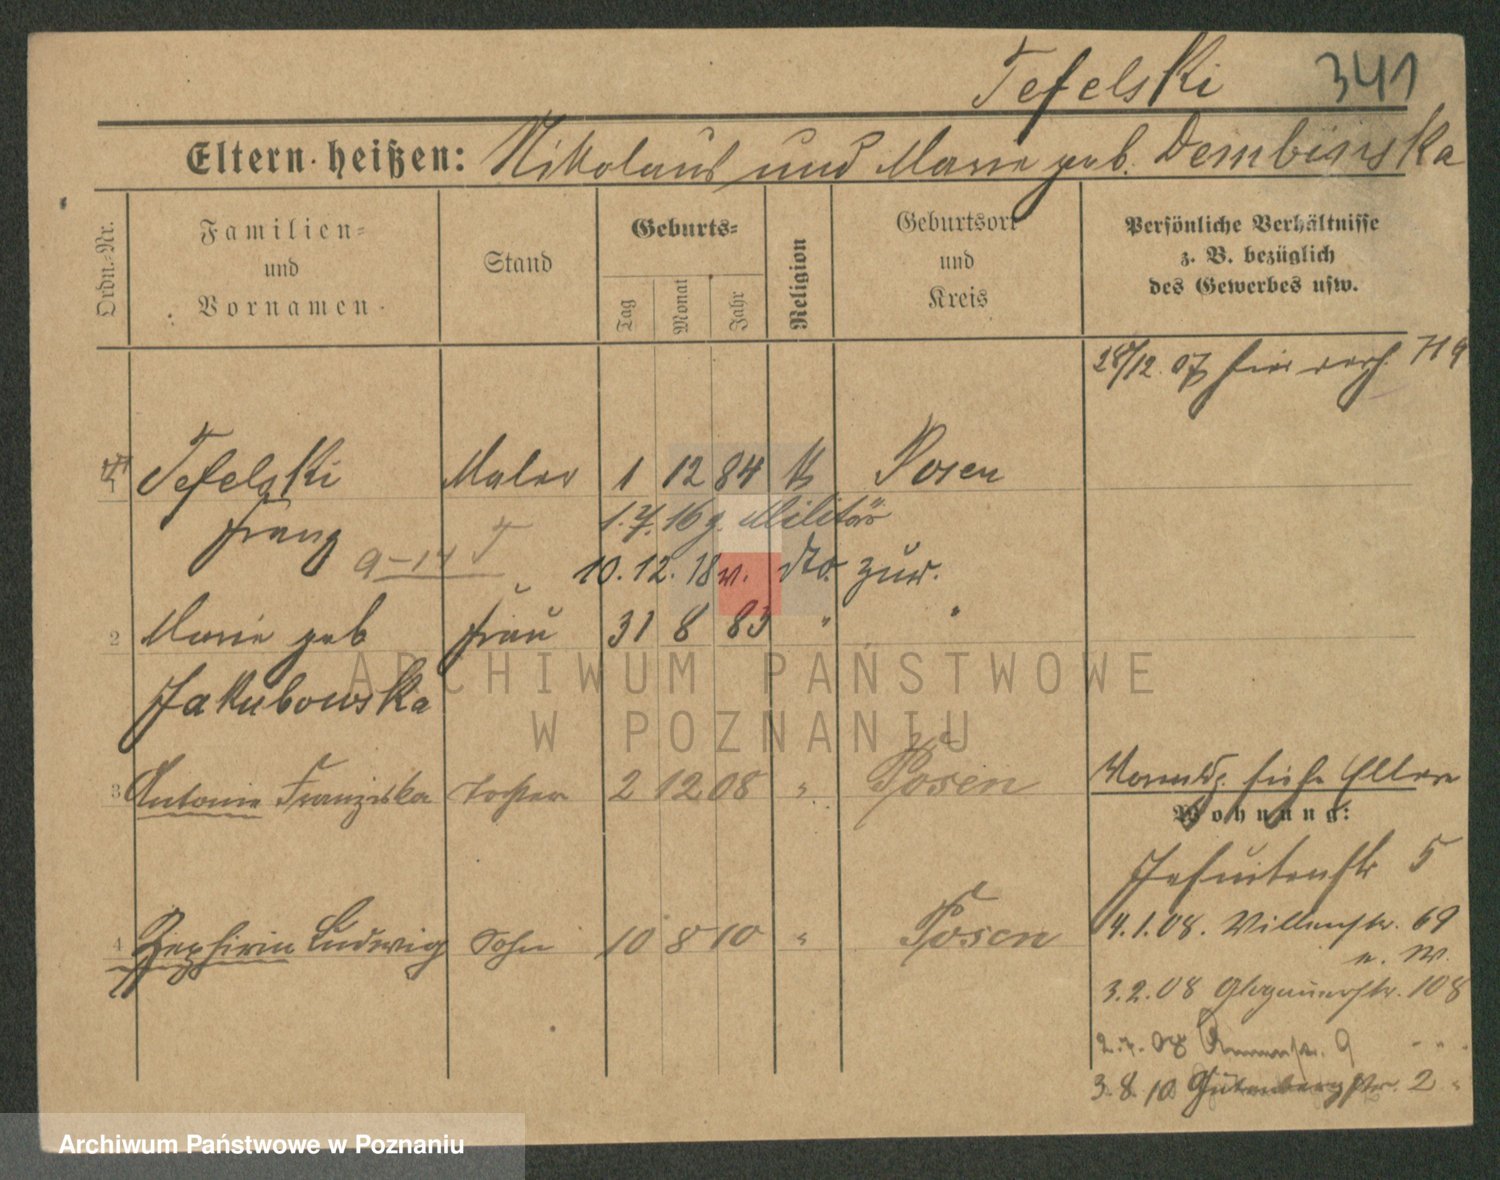 Tefelski 341
Eltern heißen: Nikolaus und Marie geb. Dembinska
Ordn.-Nr.
Familien-
und
Vornamen
Stand
Geburts-
Tag
Monat
Jahr
Religion
Geburtsort
und
Kreis
Persönliche Verhältnisse
z. B. bezüglich
des Gewerbes usw.
28/12. 07 hier verh. 719
Tefelski Maler 1 12 84 k Posen
Franz 1.7.16 z. Militär
9-14 10.12.18 v. dto. zur.
2 Marie geb Frau 31 8 83 " "
Jakubowska
3 Antonie Franziska Tochter 2 12 08 " Posen
4 Zephirin Ludwig Sohn 10 8 10 " Posen
Vorwohng. siehe Eltern
Wohnung:
Jesuitenstr 5
4.1.08. Villenstr. 69
3.2.08 Glogauerstr. 108
2.7.08 9
3.8.10 Gutenbergstr. 2 "
ARCHIWUM PAŃSTWOWE
W POZNANIU
Archiwum Państwowe w Poznaniu